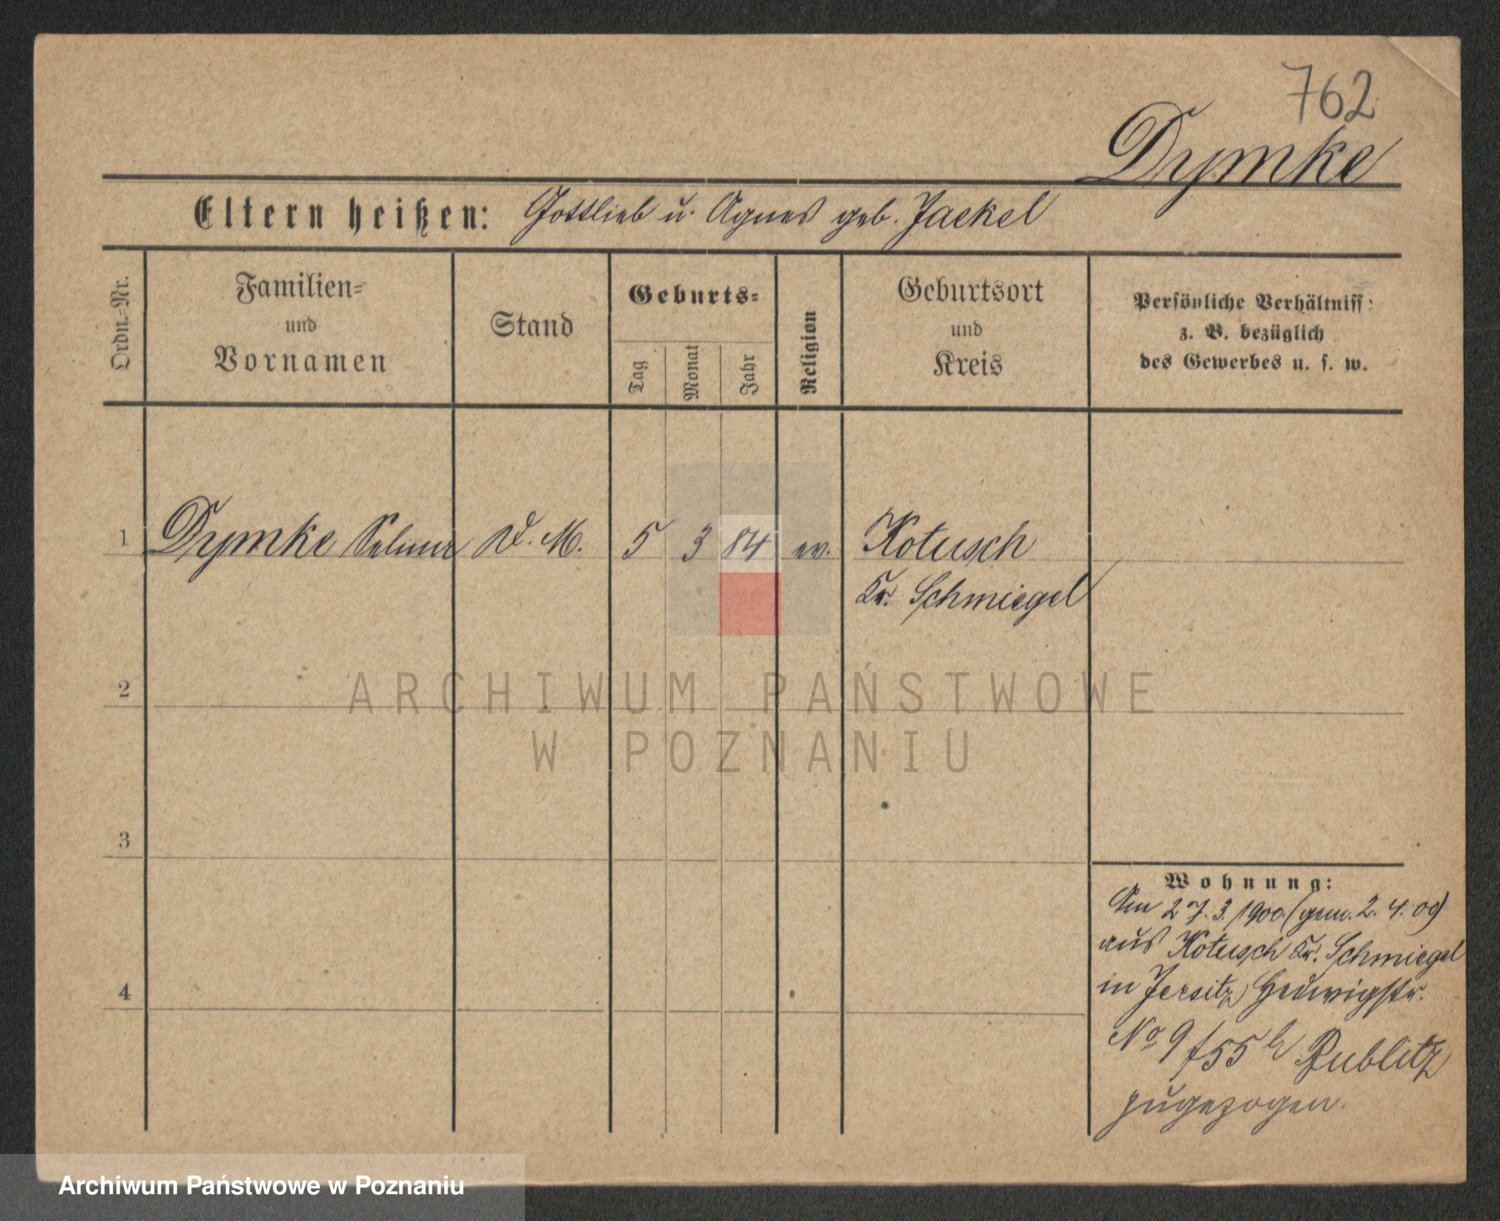 762
Dymke
Eltern heißen: Gottlieb u. Agnes geb. Jaekel
Ordn.-Nr.
Familien-
und
Vornamen
Stand
Geburts-
Tag
Monat
Jahr
Religion
Geburtsort
und
Kreis
Persönliche Verhältniss:
z. B. bezüglich
des Gewerbes u. s. w.
1 Dymke Selma D. M. 5 3 84 ev. Kotusch
Kr. Schmiegel
2
ARCHIWUM PAŃSTWOWE
W POZNANIU
3
Wohnung:
Am 27.3.1900. (gem. 2. 4. 00)
aus Kotusch Kr. Schmiegel
4
in Jersitz, Hedwigstr.
No 9 b/ Bublitz
zugezogen.
Archiwum Państwowe w Poznaniu